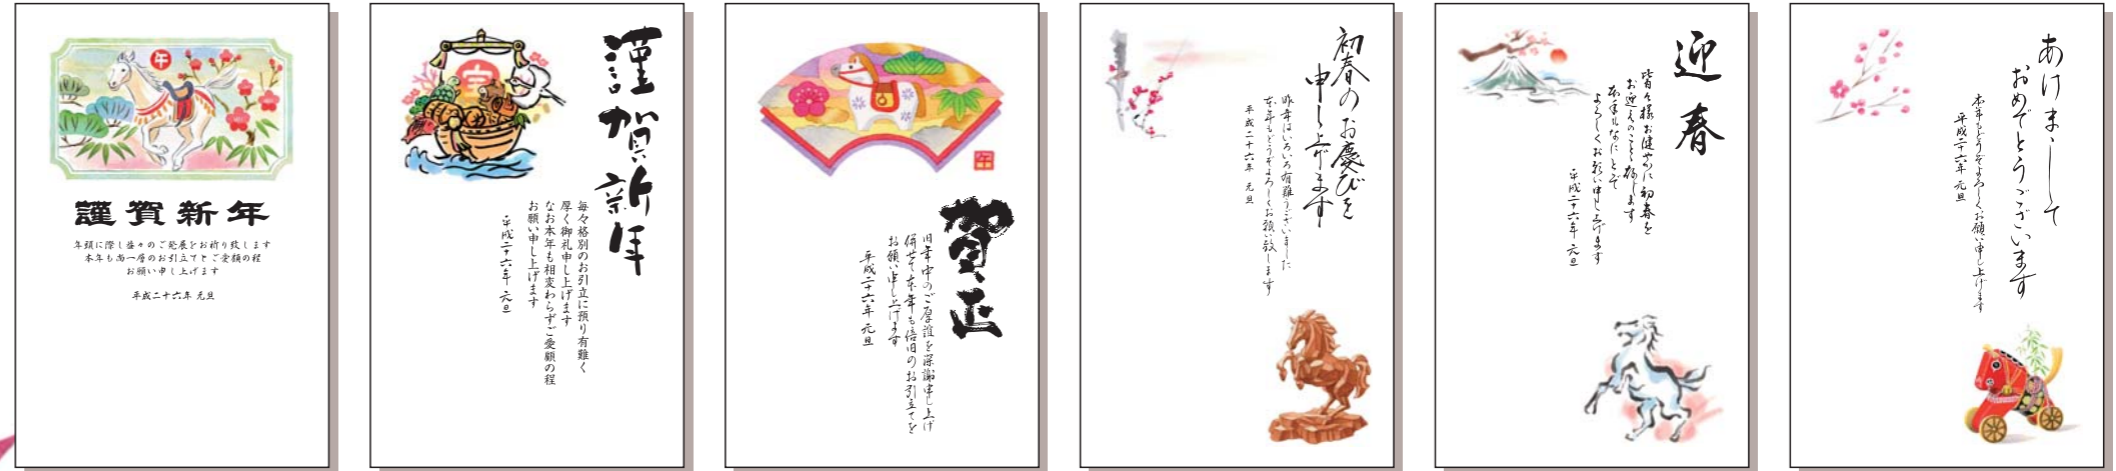 午
謹賀新年
年頭に際し益々のご発展をお祈り致します
本年も尚一層のお引立てとご愛顧の程
お願い申し上げます
平成二十六年 元旦
宝
謹賀新年
毎々格別のお引立に預り有難く
厚く御礼申し上げます
なお本年も相変わらずご愛顧の程
お願い申し上げます
平成二十六年 元旦
午
賀正
旧年中のご厚誼を深謝申し上げ
併せて本年も倍旧のお引立てを
お願い申し上げます
平成二十六年 元旦
初春のお慶びを
申し上げます
昨年はいろいろ有難うございました
本年もどうぞよろしくお願い致します
平成二十六年 元旦
迎春
皆々様お健やかに初春を
お迎えのことと存じます
本年もなにとぞ
よろしくお願い申し上げます
平成二十六年 元旦
あけまして
おめでとうございます
本年もどうぞよろしくお願い申し上げます
平成二十六年 元旦